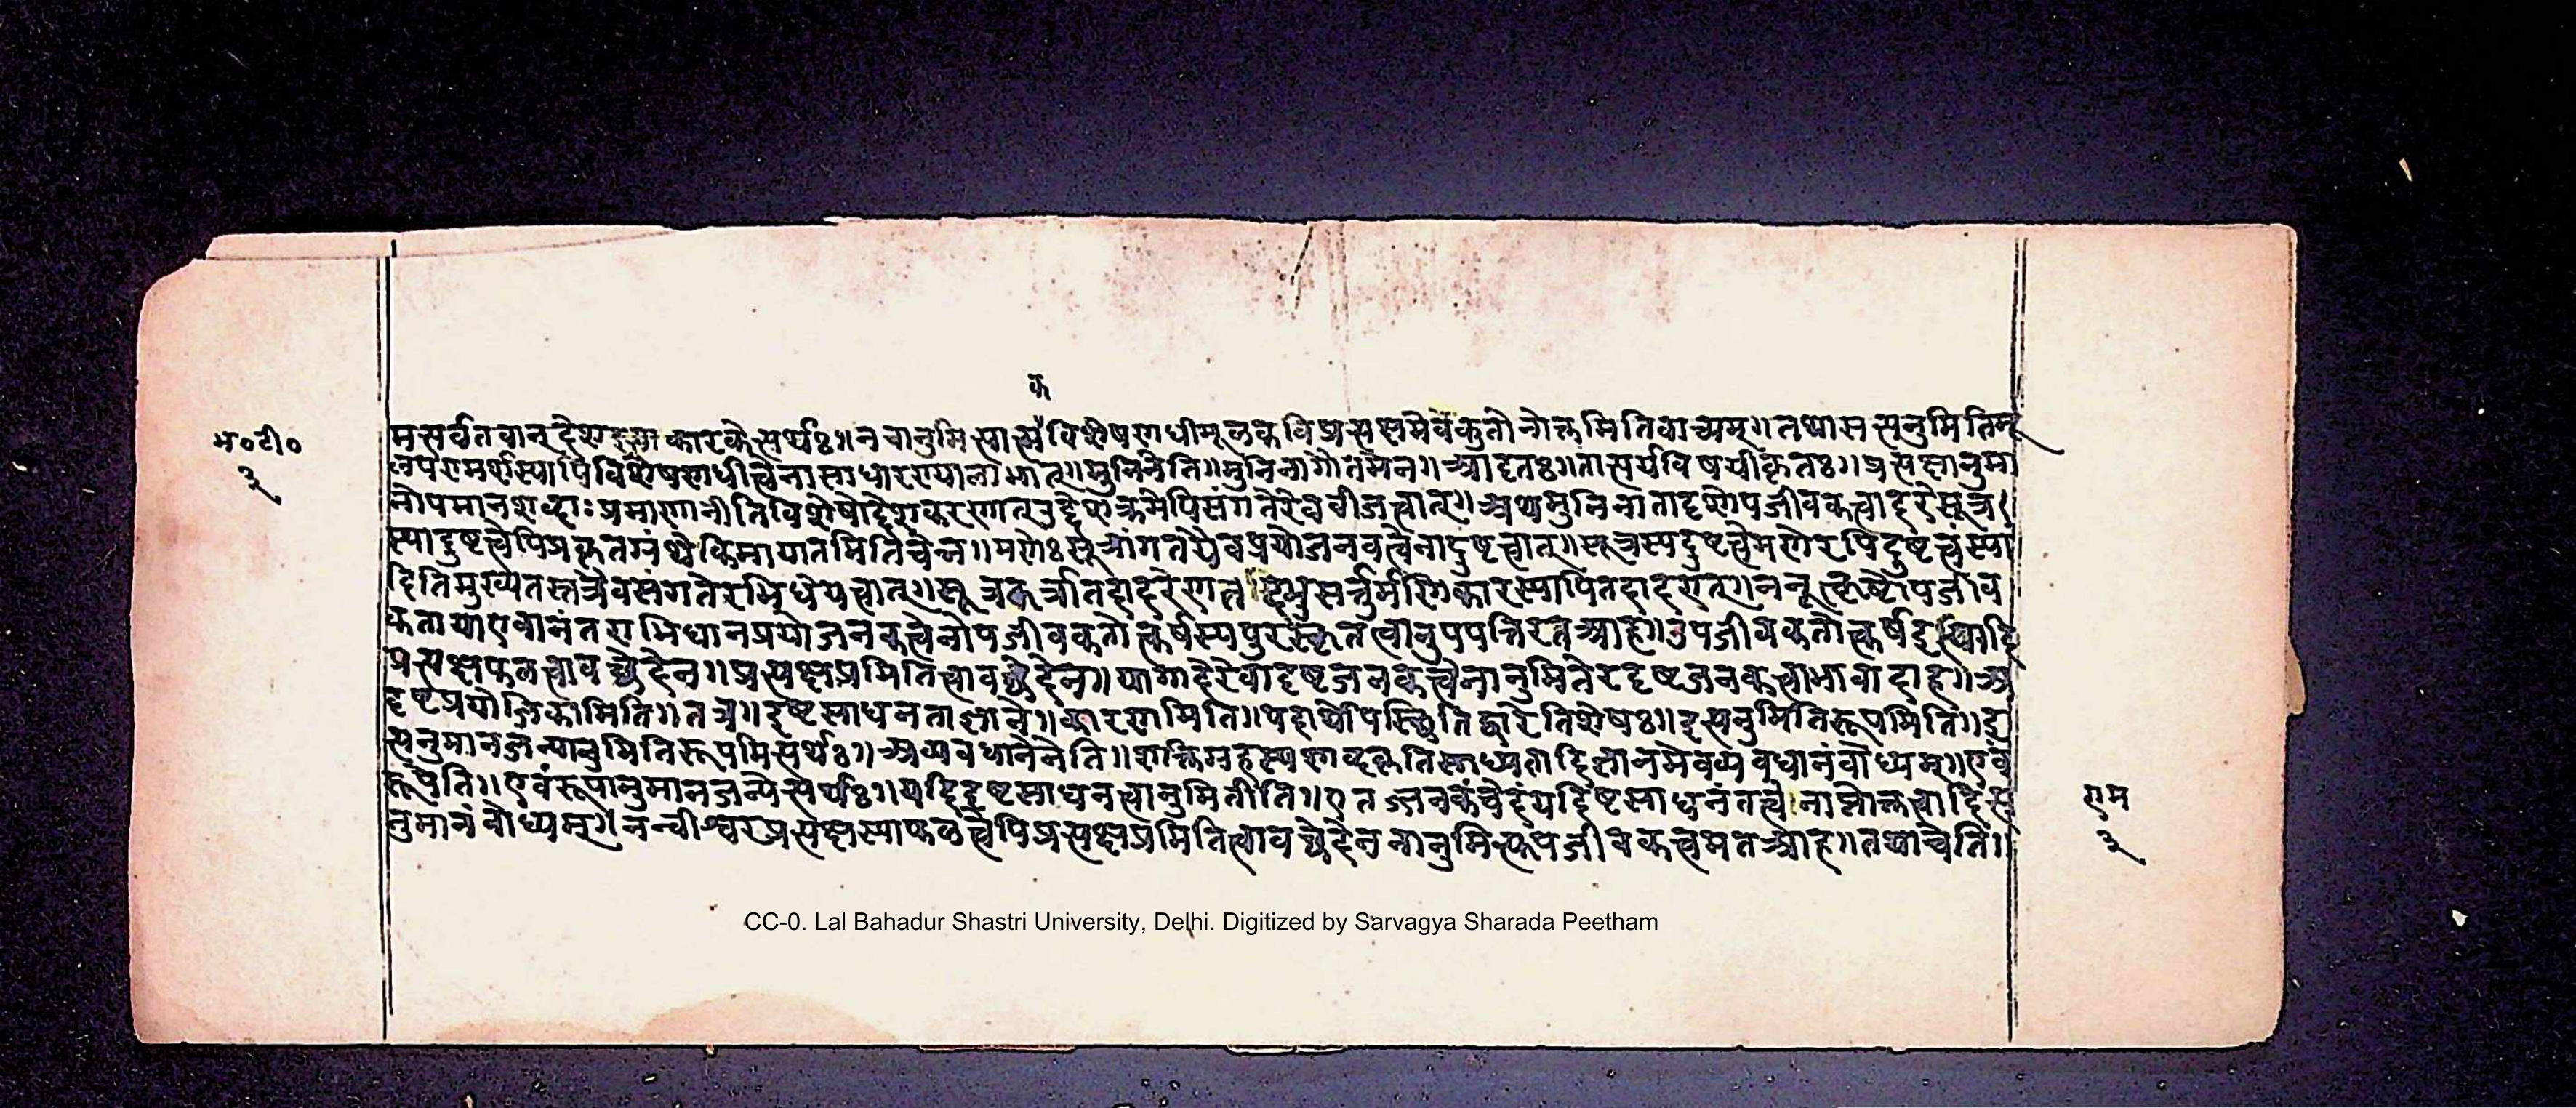 क
भ०टी०
३
मसर्वतवानुद्देश कारकेत्यर्थः॥नचानुमित्सात्म विशेषणधीमूलकविप्रत्यक्षमेवकुतोनोक्तमितिवाच्यम्।तथासत्यनुमितिमू
लपरामर्शस्यापिविशेषणधीत्वेनासाधारण्यालाभात्॥मुनिनेति॥मुनिनागौतमेन॥आदृतः॥तात्पर्यविषयीकृतः॥प्रत्यक्षानुमा
नोपमानशब्दाःप्रमाणानीतिविशेषोद्देशकरणात्उद्देशक्रमेपिसंगतेरेवबीजत्वात्।अथमुनिनातादृशोपजीवकत्वादरेसूत्र
स्यादुष्टत्वेपिप्रकृतग्रंथेकिमायातमितिचेन्न॥मणेःसूत्रांगतयैवप्रयोजनवत्वेनादुष्टत्वात्॥सूत्रस्यदुष्टत्वेमणेरपिदुष्टत्वंस्या
दितिमुख्यतस्तत्रैवसंगतेरभिधेयत्वात्॥सूत्रकर्त्रातदादरेणात्त मनुसर्त्तुर्मणिकारस्यापितदादरात्।ननूत्कृष्टोपजीव
कतायाएवानंतराभिधानप्रयोजनकत्वेनोपजीवकतोत्कर्षस्यपुरस्कृतत्वानुपपत्तिरतआह॥उपजीवकतोत्कर्षइत्यादि
प्रत्यक्षफलत्वावच्छेदेन॥प्रत्यक्षप्रमितित्वावच्छेदेन॥यागादेरेवादृष्टजनकत्वेनानुमितेरदृष्टजनकत्वाभावादाह॥अ
दृष्टप्रयोजिकामिति॥तत्र॥दृष्टसाधनताज्ञाने॥कारणमिति॥पदार्थोपस्थितिद्वारेतिशेषः॥इत्यनुमितिरूपमिति॥इ
त्यनुमानजन्यानुमितिरूपमित्यर्थः॥अव्यवधानेनेति॥शक्तिग्रहस्यशाब्द ज्ञानमेवव्यवधानंबोध्यम्॥एवं
रूपेति॥एवंरूपानुमानजन्येत्यर्थः॥यदिदृष्टसाधनत्वानुमितीति॥एतज्जनकंचेदंयदिष्टसाधनंतत्वे नाप्तोक्तत्वादित्य
नुमानंबोध्यम्॥नन्वीश्वरप्रत्यक्षस्याफलत्वेपिप्रत्यक्षप्रमितित्वावच्छेदेननानुमित्युपजीवकत्वमतआह॥तथाचेति॥
राम
३
CC-0. Lal Bahadur Shastri University, Delhi. Digitized by Sarvagya Sharada Peetham